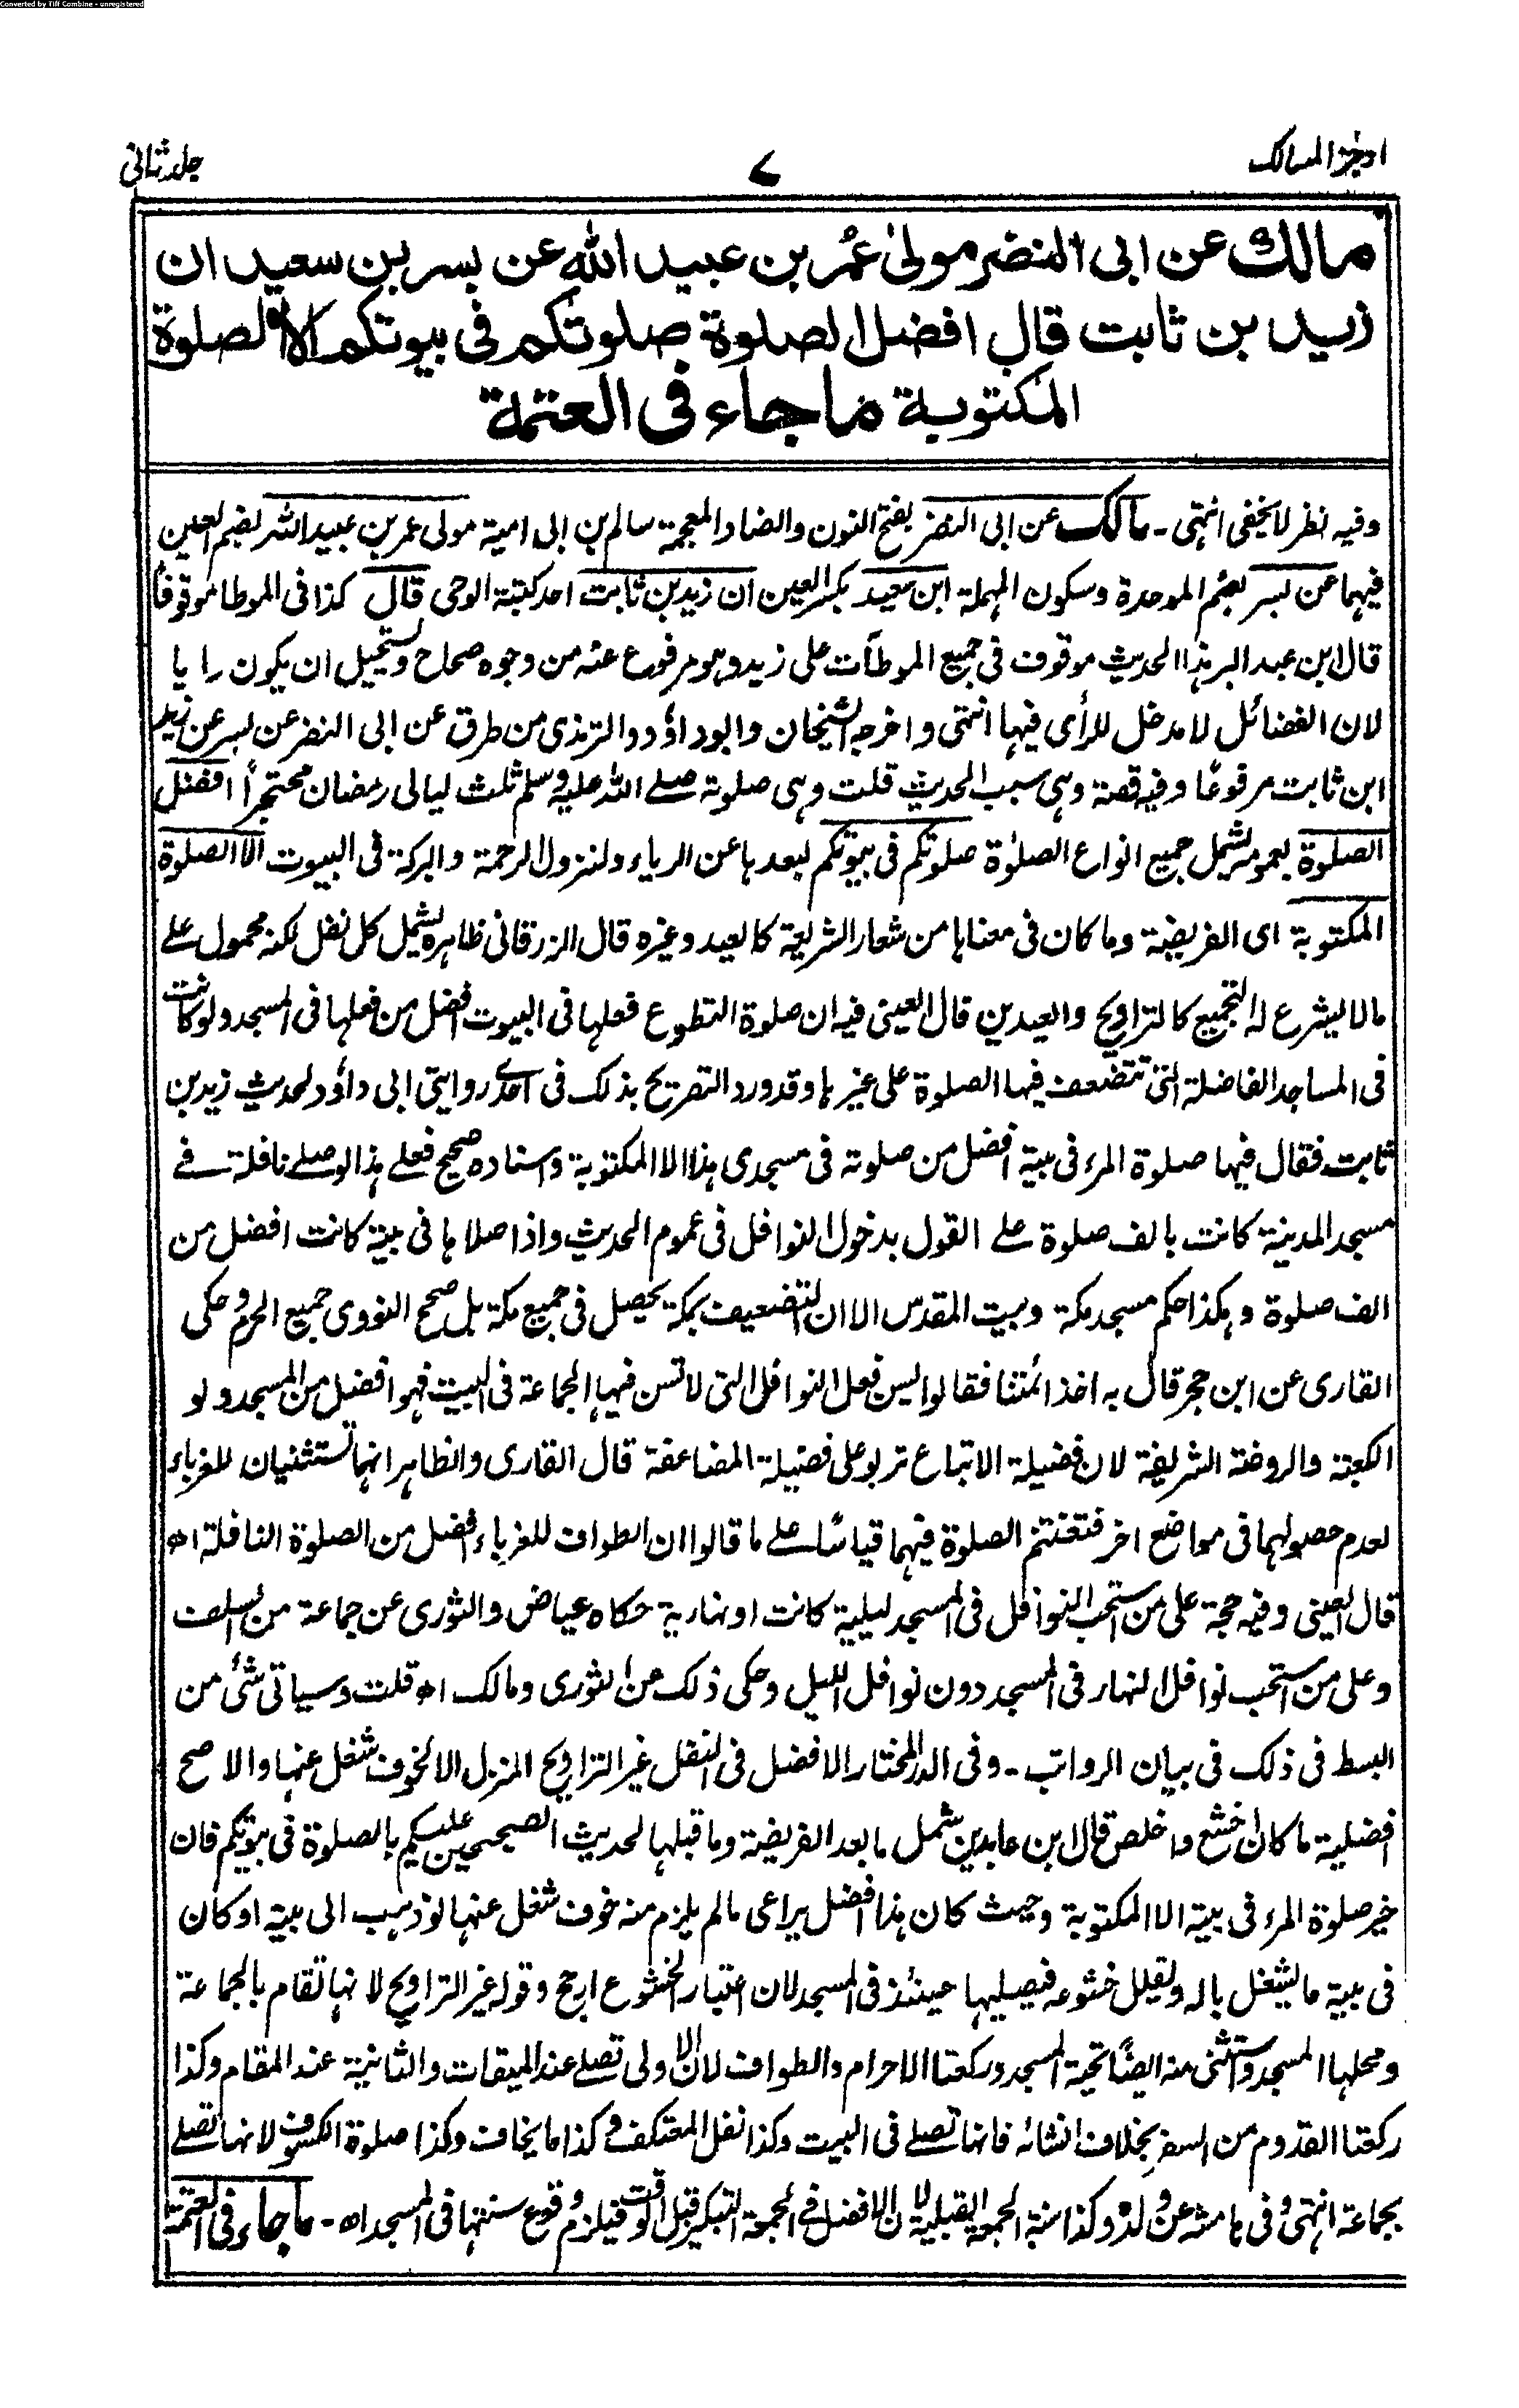 Converted by Tiff Combine - unregistered
اوجز المسالک
۷
جلد ثانی
مالك عن ابی النضر مولیٰ عمر بن عبيد الله عن بسر بن سعيد ان
زيد بن ثابت قال افضل الصلوة صلوتكم فى بيوتكم الا الصلوة
المكتوبة ماجاء فى العتمة
وفيه نظر لا يخفى انتهى۔ مالک عن ابى النضر بفتح النون والضاد المعجمة سالم بن ابى امية مولى عمر بن عبيد الله بضم العين
فيهما عن بسر بضم الموحدة وسكون المهملة ابن سعيد بكسر العين ان زيد بن ثابت احد كتبة الوحى قال كذا فى الموطا موقوفاً
قال ابن عبد البر هذا الحديث موقوف فى جميع الموطآت على زيد وهو مرفوع عنه من وجوه صحاح ويستحيل ان يكون رايا
لان الفضائل لا مدخل للرأى فيها انتهى واخرجه الشيخان وابو داؤد والترمذى من طرق عن ابى النضر عن بسر عن زيد
ابن ثابت مرفوعًا وفيه قصة وهى سبب الحديث قلت وهى صلوته صلے الله عليه وسلم ثلث ليالى رمضان محتجرًا افضل
الصلوة بعمومه يشمل جميع انواع الصلوٰة صلوتكم فى بيوتكم لبعدها عن الرياء ولنزول الرحمة والبركة فى البيوت الا الصلوة
المكتوبة اى الفريضة وما كان فى معناها من شعار الشريعة كالعيد وغيره قال الزرقانى ظاهره يشمل كل نفل لكنه محمول علے
مالا يشرع له التجميع كالتراويح والعيدين قال العينى فيه ان صلوة التطوع فعلها فى البيوت افضل من فعلها فى المسجد ولو كانت
فى المساجد الفاضلة التى تتضعف فيها الصلوة على غيرها وقد ورد التصريح بذلك فى احدے روايتى ابى داؤد لحديث زيد بن
ثابت فقال فيها صلوة المرء فى بيته افضل من صلوته فى مسجدى هذا الا المكتوبة واسناده صحيح فعلے هذا لو صلے نافلة فے
مسجد المدينة كانت بالف صلوة علے القول بدخول النوافل فى عموم الحديث واذا صلاها فى بيته كانت افضل من
الف صلوة وهكذا حكم مسجد مكة وبيت المقدس الا ان التضعيف بمكة يحصل فى جميع مكة بل صحح النووى جميع الحرم وحكى
القارى عن ابن حجر قال به اخذ ائمتنا فقالوا ليس فعل النوافل التى لا تسن فيها الجماعة فى البيت فهو افضل من المسجد ولو
الكعبة والروضة الشريفة لان فضيلة الاتباع تربو على فضيلة المضاعفة قال القارى والظاهر انهما تستثنيان للغرباء
لعدم حصولهما فى مواضع اخر فتغتنم الصلوة فيهما قياسًا علے ما قالوا ان الطواف للغرباء افضل من الصلوة النافلة اه
قال العينى وفيه حجة على من استحب النوافل فى المسجد ليلية كانت او نهارية حكاه عياض والثورى عن جماعة من السلف
وعلى من استحب نوافل النهار فى المسجد دون نوافل الليل وحكى ذلك عن الثورى ومالك اه قلت وسياتى شئ من
البسط فى ذلك فى بيان الرواتب۔ وفى الدر المختار الافضل فى النفل غير التراويح المنزل الا لخوف شغل عنها والاصح
افضلية ما كان اخشع واخلص قال ابن عابدين شمل ما بعد الفريضة وما قبلها لحديث الصحيحين عليكم بالصلوة فى بيوتكم فان
خير صلوة المرء فى بيته الا المكتوبة وحيث كان هذا افضل يراعى مالم يلزم منه خوف شغل عنها لو ذهب الى بيته او كان
فى بيته ما يشغل باله ويقلل خشوعه فيصليها حينئذ فى المسجد لان اعتبار الخشوع ارجح وقوله غير التراويح لانها تقام بالجماعة
ومحلها المسجد ويستثنى منه ايضًا تحية المسجد وركعتا الاحرام والطواف لان الاولى تصلے عند الميقات والثانية عند المقام وكذا
ركعتا القدوم من السفر بخلاف انشائه فانها تصلے فى البيت وكذا نفل المعتكف وكذا ما يخاف وكذا صلوة الكسوف لانها تصلے
بجماعة انتهى وفى هامشه عن ولده وكذا سنة الجمعة القبلية لان الافضل فے الجمعة التبكير قبل الوقت فيلزم وقوع سنتها فى المسجد اه۔ ماجاء فى العتمة